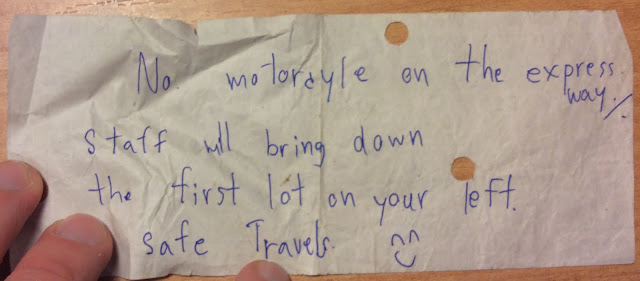 No. motorcyle on the express
way./.
staff will bring down
the first lot on your left.
safe Travels.